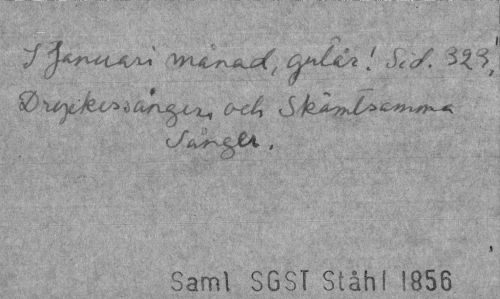 I Januari månad, gulår! Sid. 323,
Dryckessånger, och Skämtsamma
Sånger.
Saml SGST Ståhl 1856